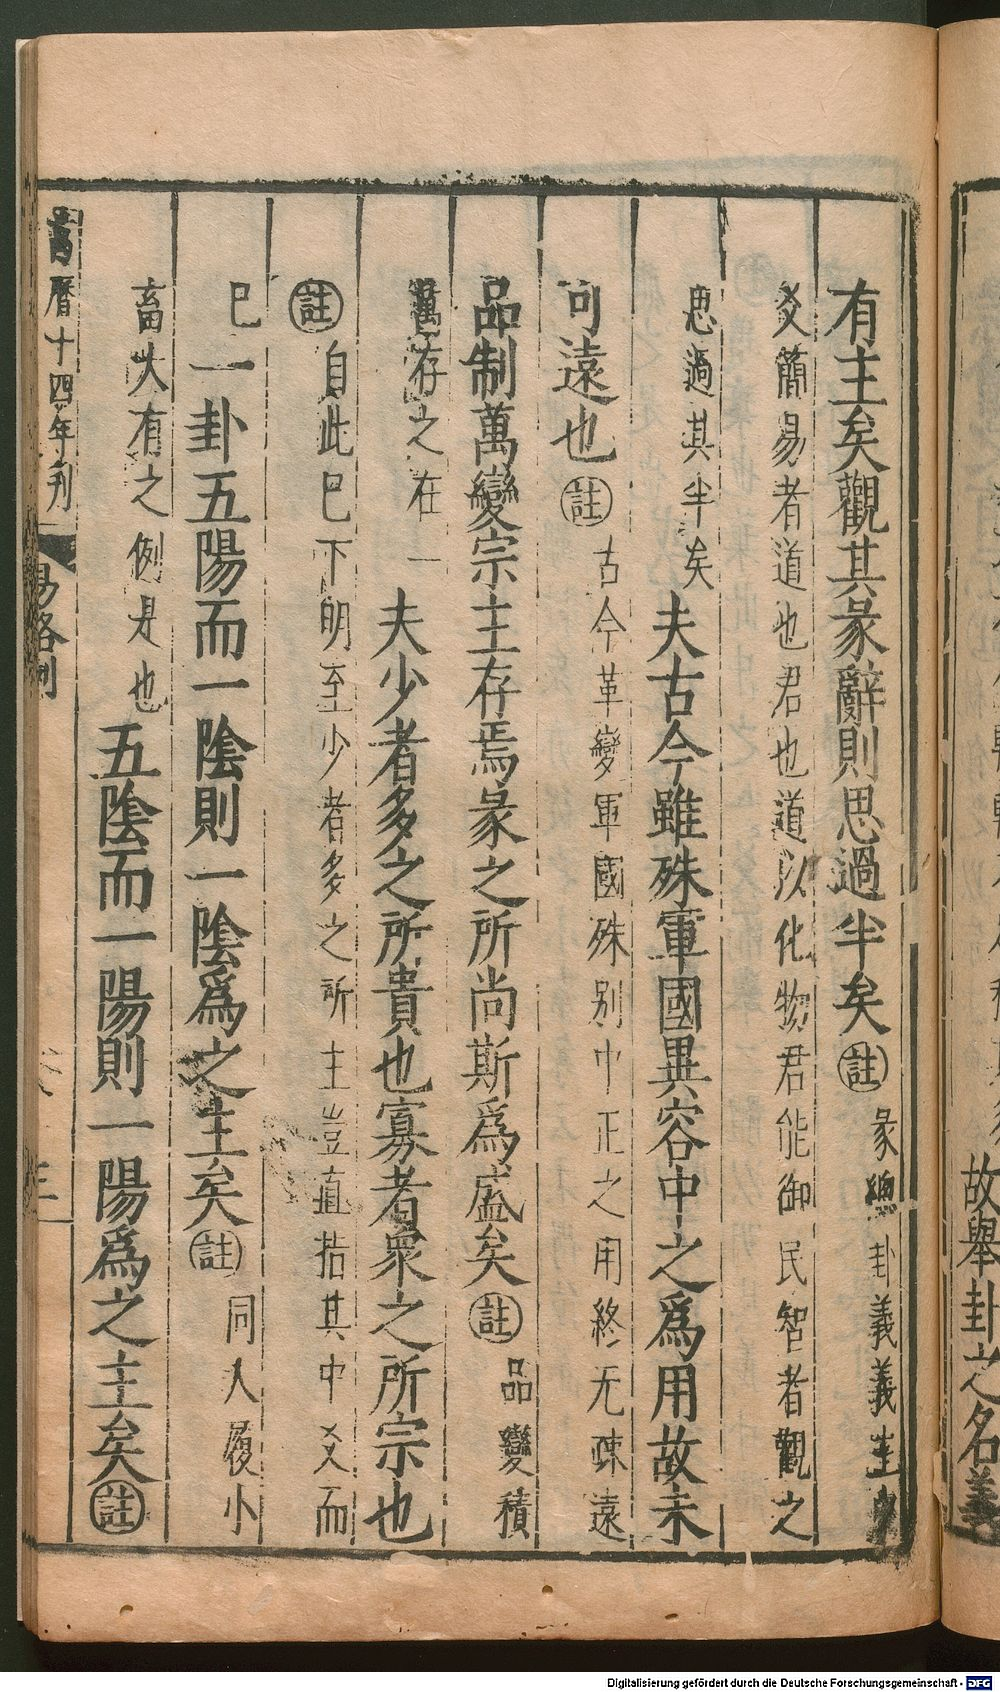 故舉卦之名義
有主矣觀其彖辭則思過半矣註彖總卦義義主
爻簡易者道也君也道以化物君能御民智者觀之
思過其半矣夫古今雖殊軍國異容中之爲用故未
可遠也註古今革變軍國殊别中正之用終无疎遠
品制萬變宗主存焉彖之所尚斯爲盛矣註品變積
萬存之在一夫少者多之所貴也寡者衆之所宗也
註自此已下明至少者多之所主豈直指其中爻而
已一卦五陽而一陰則一陰爲之主矣註同人履小
畜大有之例是也五陰而一陽則一陽爲之主矣註
萬曆十四年刋 易略例 三
Digitalisierung gefördert durch die Deutsche Forschungsgemeinschaft - DFG